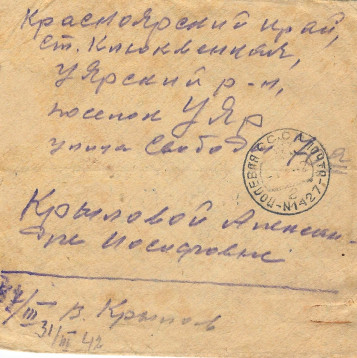 Красноярский край,
ст. Клюквенная,
Уярский р-н,
поселок Уяр
улица Свободы
ПОЛЕВАЯ С.С.С.Р. ПОЧТА
-N1427-
Крыловой Алексан-
дре Иосифовне
/III В. Крылов
31/III 42